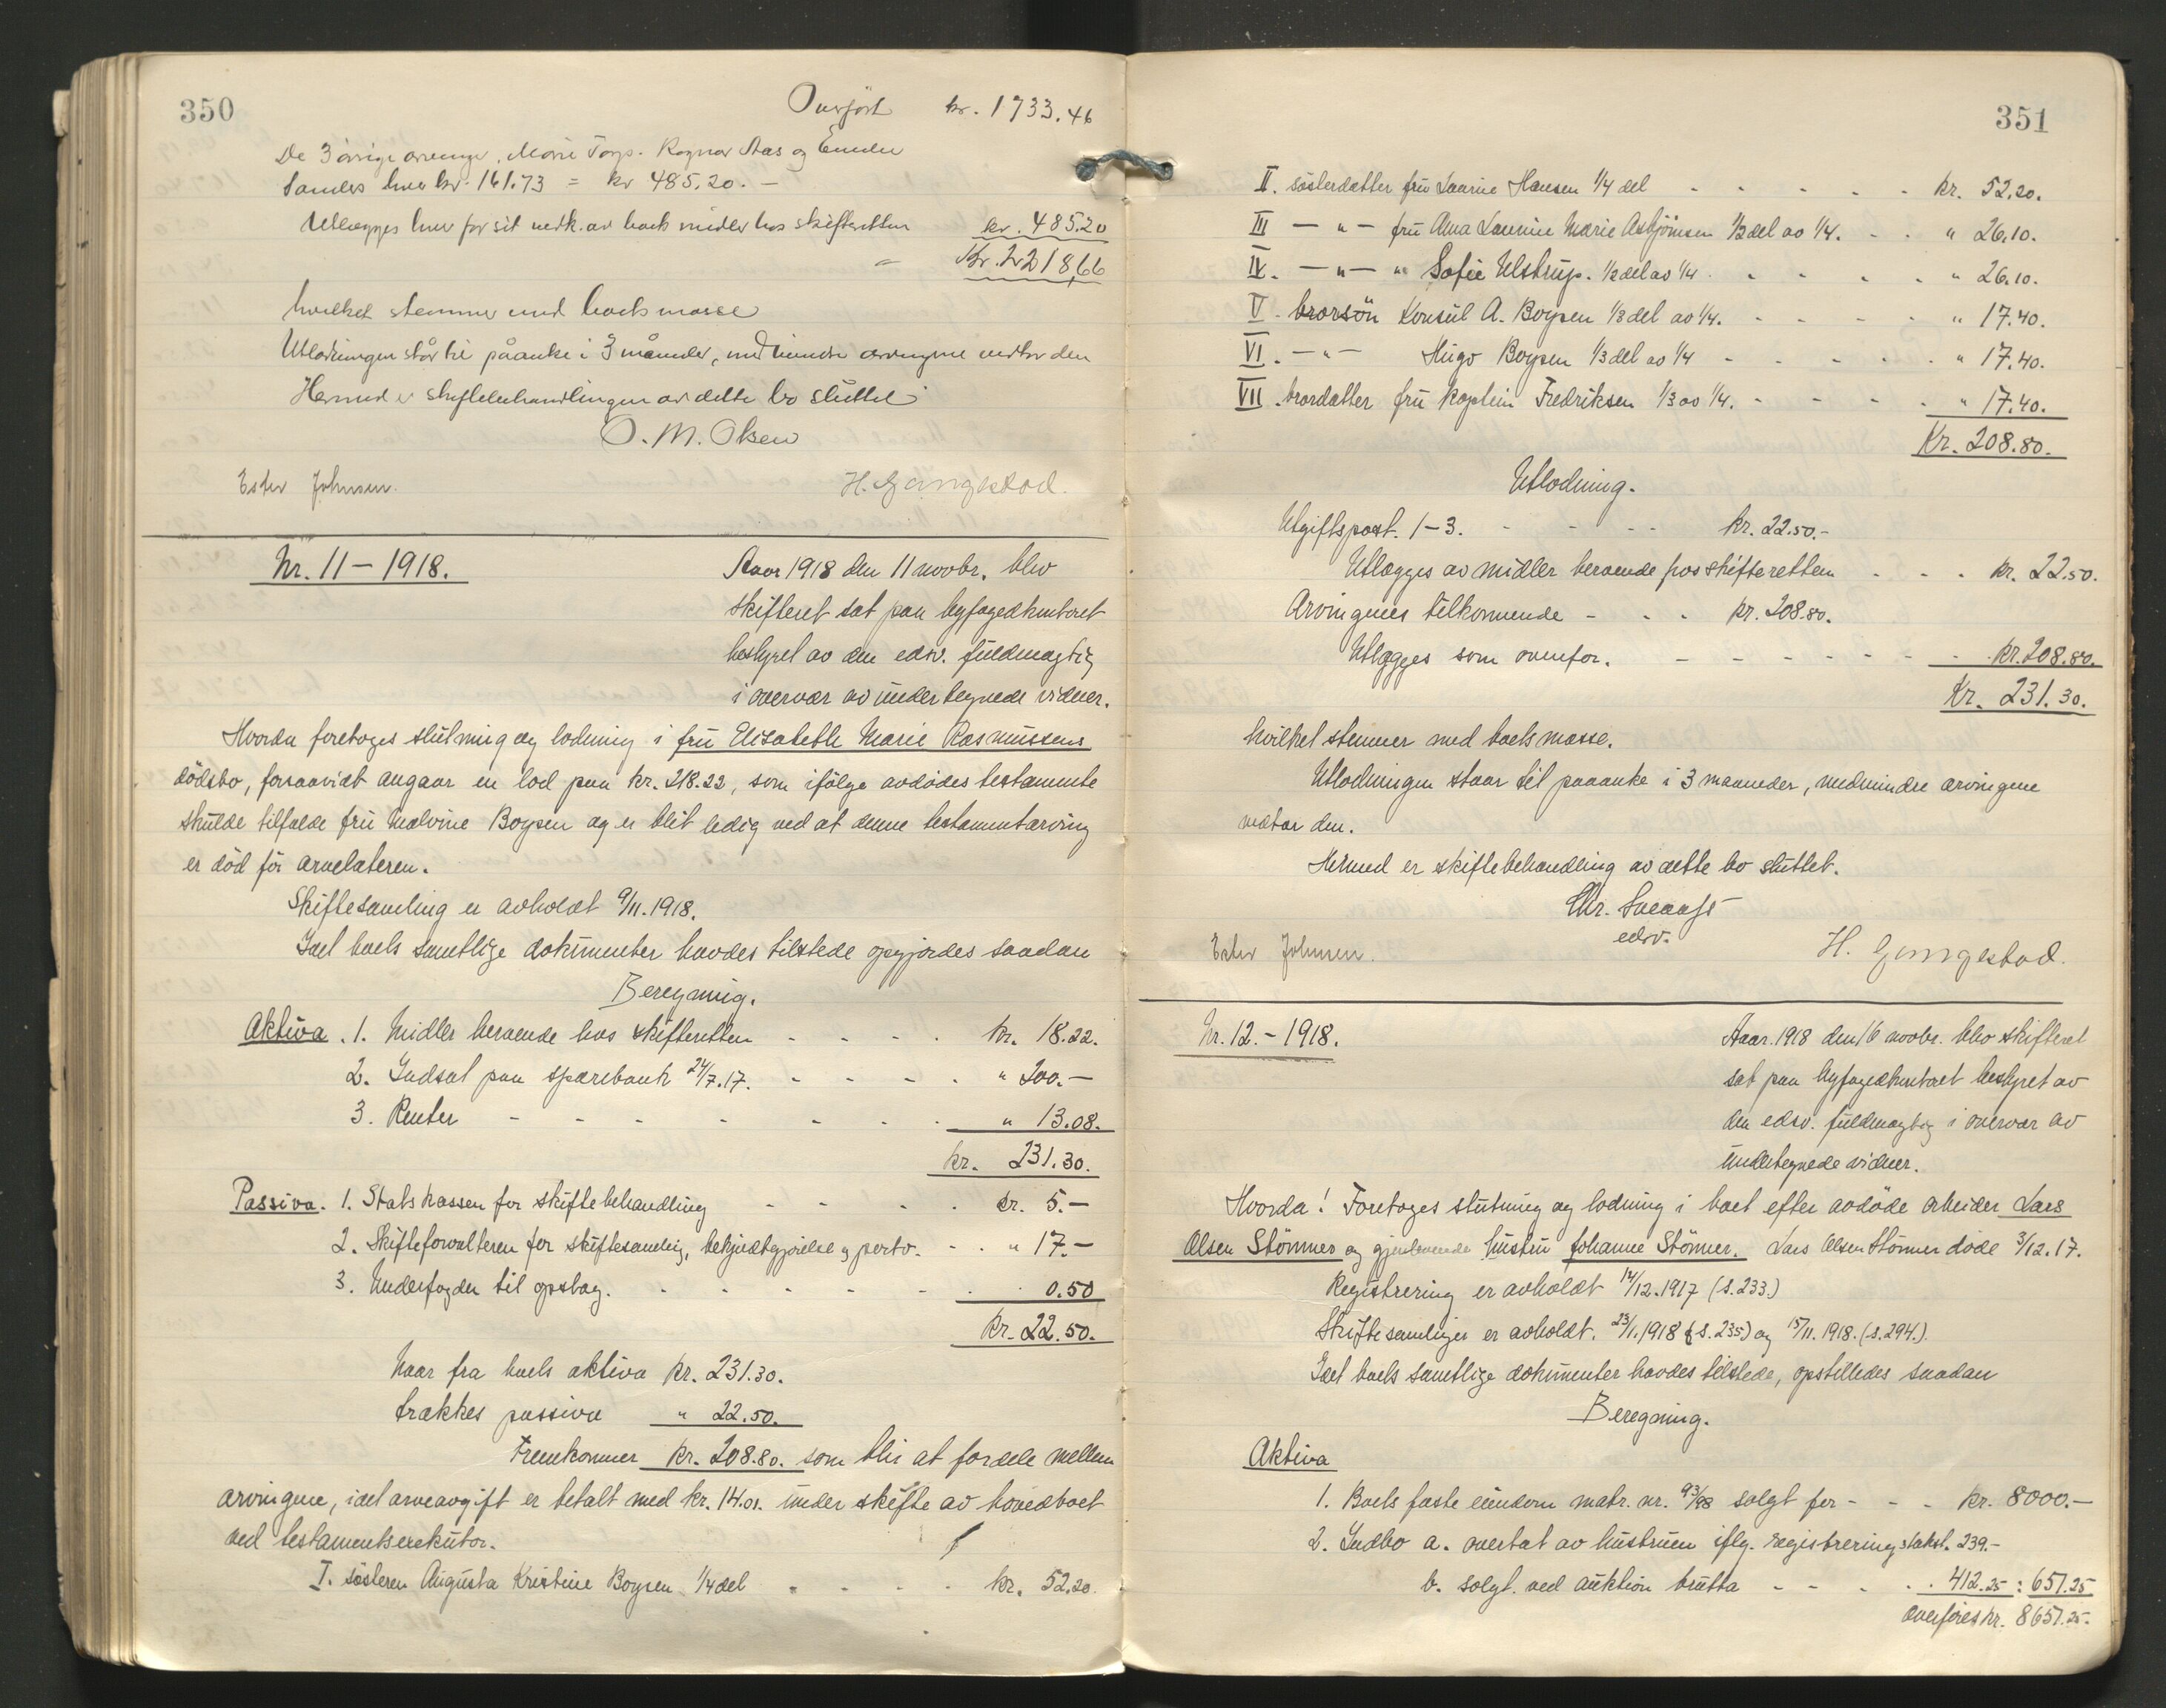 350
Overført kr. 1733.46
De 3 övrige arvinger, Marie Torp. Ragnar Aas og
hver kr. 161.73 = kr 485.20. —
Utlægges hver for sit vedk. av boets midler hos skifteretten kr. 485.20
= Kr. 2218,66
hvilket stemmer med boets masse
Utlodningen står til påanke i 3 måneder, medmindre arvingene vedtar den
Hermed er skiftebehandlingen av dette bo sluttet
O. M. Olsen
Ester Johnsen. H. Gangestad.
Nr. 11 — 1918. Aar 1918 den 11 novbr. blev
skifteret sat paa byfogedkontoret
bestyret av den edsv. fuldmægtig
i overvær av undertegnede vidner.
Hvorda foretoges slutning og lodning i fru Elisabeth Marie Rasmussens
dödsbo, forsaavidt angaar en lod paa kr. 218.22, som ifölge avdödes testamente
skulde tilfalde fru Malvine Boysen og er blit ledig ved at denne testamentarving
er död för arvelateren.
Skiftesamling er avholdt 9/11.1918.
Idet boets samtlige dokumenter havdes tilstede opgjordes saadan
Beregning.
Aktiva. 1. Midler beroende hos skifteretten - - - kr. 18.22.
2. Indsat paa sparebank 24/7.17. - - - " 200.—
3. Renter - - - - - - " 13.08.
kr. 231.30.
Passiva. 1. Statskassen for skiftebehandling - - - kr. 5.—
2. Skifteforvalteren for skiftesamling, bekjendtgjörelse og porto. - - " 17.—
3. Underfogden til opslag. - - - - - 0.50
Kr. 22.50.
Naar fra boets aktiva kr. 231.30.
trækkes passiva " 22.50.
Fremkommer kr. 208.80. som blir at fordele mellem
arvingene, idet arveavgift er betalt med kr. 14.01. under skifte av hovedboet
ved testamentsexekutor.
I. sösteren Augusta Kristine Boysen 1/4 del - - - kr. 52.20.
351
II. sösterdatter fru Laurine Hansen 1/4 del - - - - - kr. 52.20.
III — " — fru Anna Laurine Marie Asbjörnsen 1/2 del av 1/4. - - " 26.10.
IV. — " — " Sofie Ulstrup. 1/2 del av 1/4. - - - - " 26.10.
V. brorsön Konsul A. Boysen 1/3 del av 1/4. - - - - " 17.40.
VI. — " — Hugo Boysen 1/3 del av 1/4 - - - - - " 17.40.
VII. brordatter fru Kaptein Fredriksen 1/3 av 1/4. - - - - " 17.40.
Kr. 208.80.
Utlodning.
Utgiftspost. 1—3. - - - - kr. 22.50.-
Utlægges av midler beroende hos skifteretten - - - kr. 22.50.
Arvingenes tilkommende - - - kr. 208.80.
Utlægges som ovenfor. - - - - - - - kr. 208.80.
Kr. 231.30.
hvilket stemmer med boets masse.
Utlodningen staar til paaanke i 3 maaneder, medmindre arvingene
vedtar den.
Hermed er skiftebehandling av dette bo sluttet.
Chr.
edsv.
Ester Johnsen. H. Gangestad.
Nr. 12. - 1918. Aar 1918 den 16 novbr. blev skifteret
sat paa byfogedkontoret bestyret av
den edsv. fuldmægtig i overvær av
undertegnede vidner.
Hvorda! Foretoges slutning og lodning i boet efter avdöde arbeider Lars
Olsen Stömner og gjenlevende hustru Johanne Stömner. Lars Olsen Stömner döde 3/12.17.
Registrering er avholdt 14/12.1917 (s. 233.)
Skiftesamlinger er avholdt. 23/1.1918 (s. 235.) og 15/11.1918. (s. 294.)
Idet boets samtlige dokumenter havdes tilstede, opstilledes saadan
Beregning.
Aktiva
1. Boets faste eiendom matr. nr. 93/98 solgt for - - - kr. 8000.—
2. Indbo a. overtat av hustruen iflg. registreringstakst. 239.-
b. solgt ved auktion brutto - - - - 412.25 : 651.25
overföres kr. 8651.25.